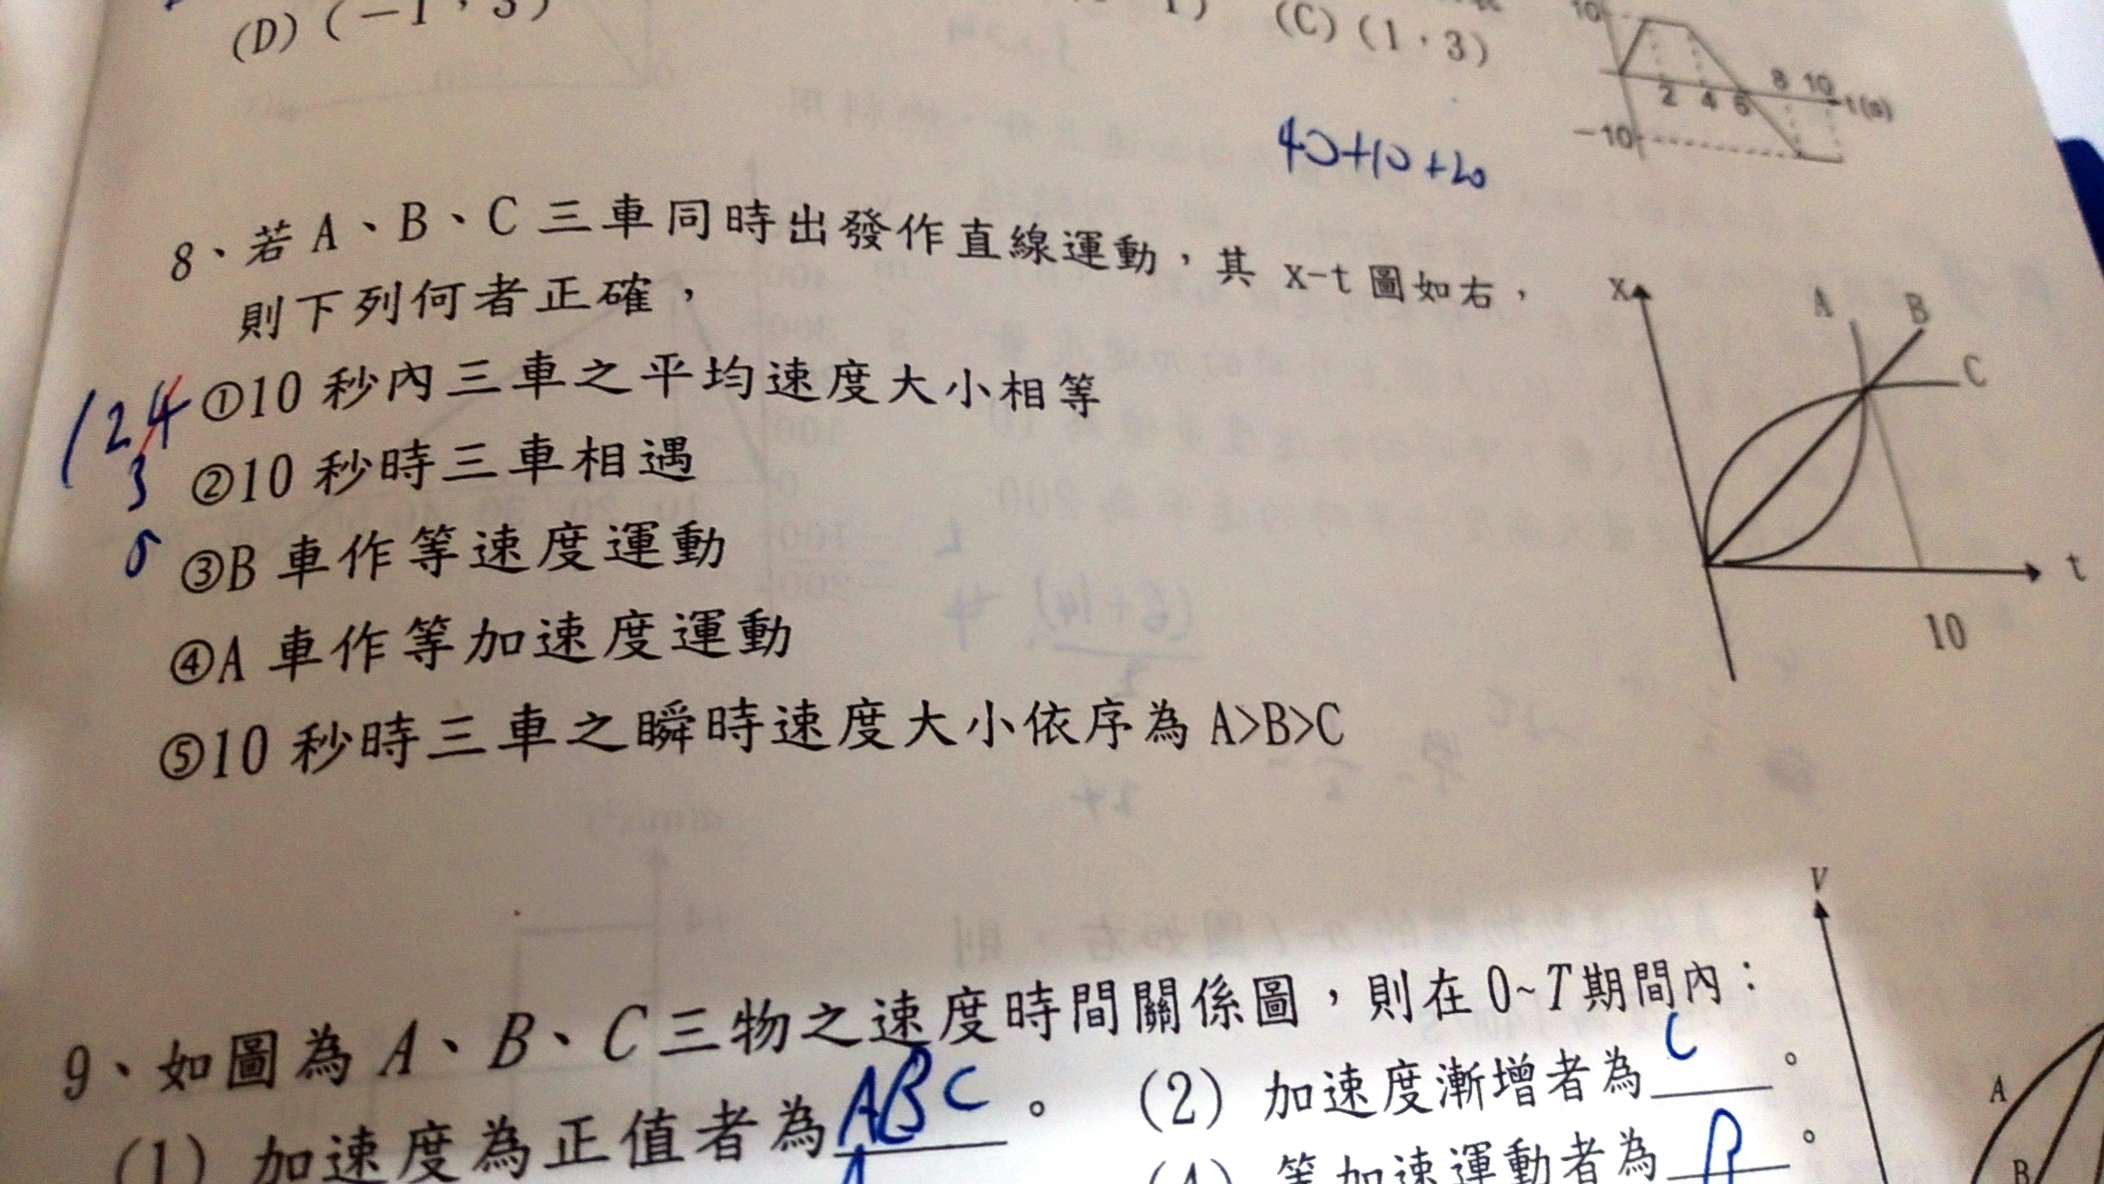 (D)(－1，3)
(C)(1，3)
10
8 10
2 4 6
t(s)
-10
40+10+20
8、若 A、B、C 三車同時出發作直線運動，其 x-t 圖如右，
則下列何者正確，
①10 秒內三車之平均速度大小相等
②10 秒時三車相遇
③B 車作等速度運動
④A 車作等加速度運動
⑤10 秒時三車之瞬時速度大小依序為 A>B>C
124
3
5
x
A
B
C
t
10
9、如圖為 A、B、C 三物之速度時間關係圖，則在 0~T 期間內：
(1) 加速度為正值者為 ABC 。
(2) 加速度漸增者為 C 。
(4) 等加速運動者為 B 。
V
A
B